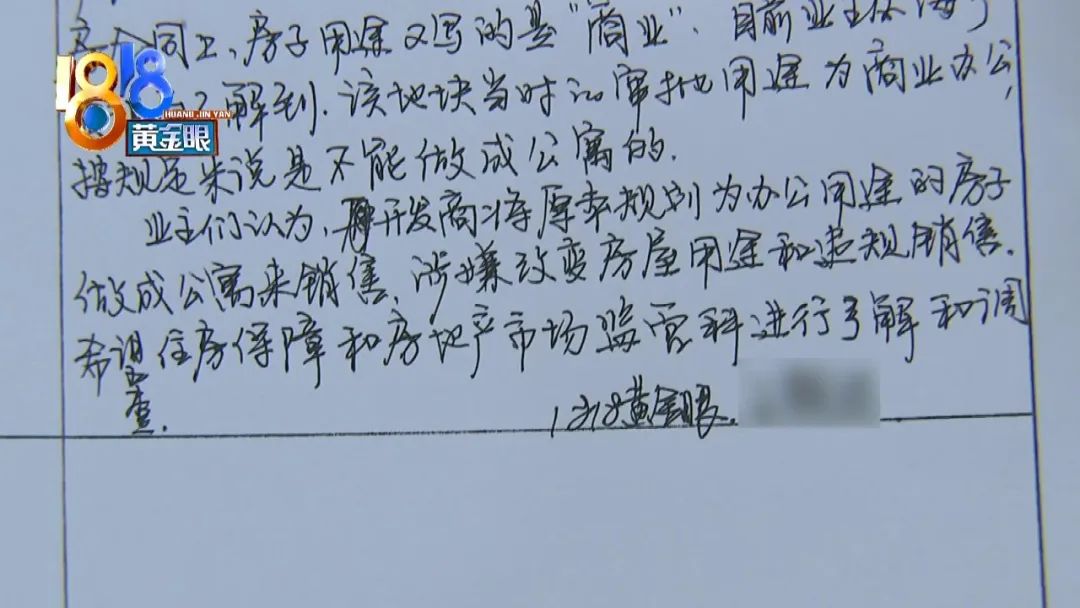 合同上,房子用途又写的是"商业".目前业主
1818
HUANG JIN YAN
黄金眼
了解到.该地块当时的审批用途为商业办公,
按规定来说是不能做成公寓的.
业主们认为,开发商将原本规划为办公用途的房子
做成公寓来销售,涉嫌改变房屋用途和违规销售.
希望住房保障和房地产市场监管科进行了解和调
查.
1818黄金眼.